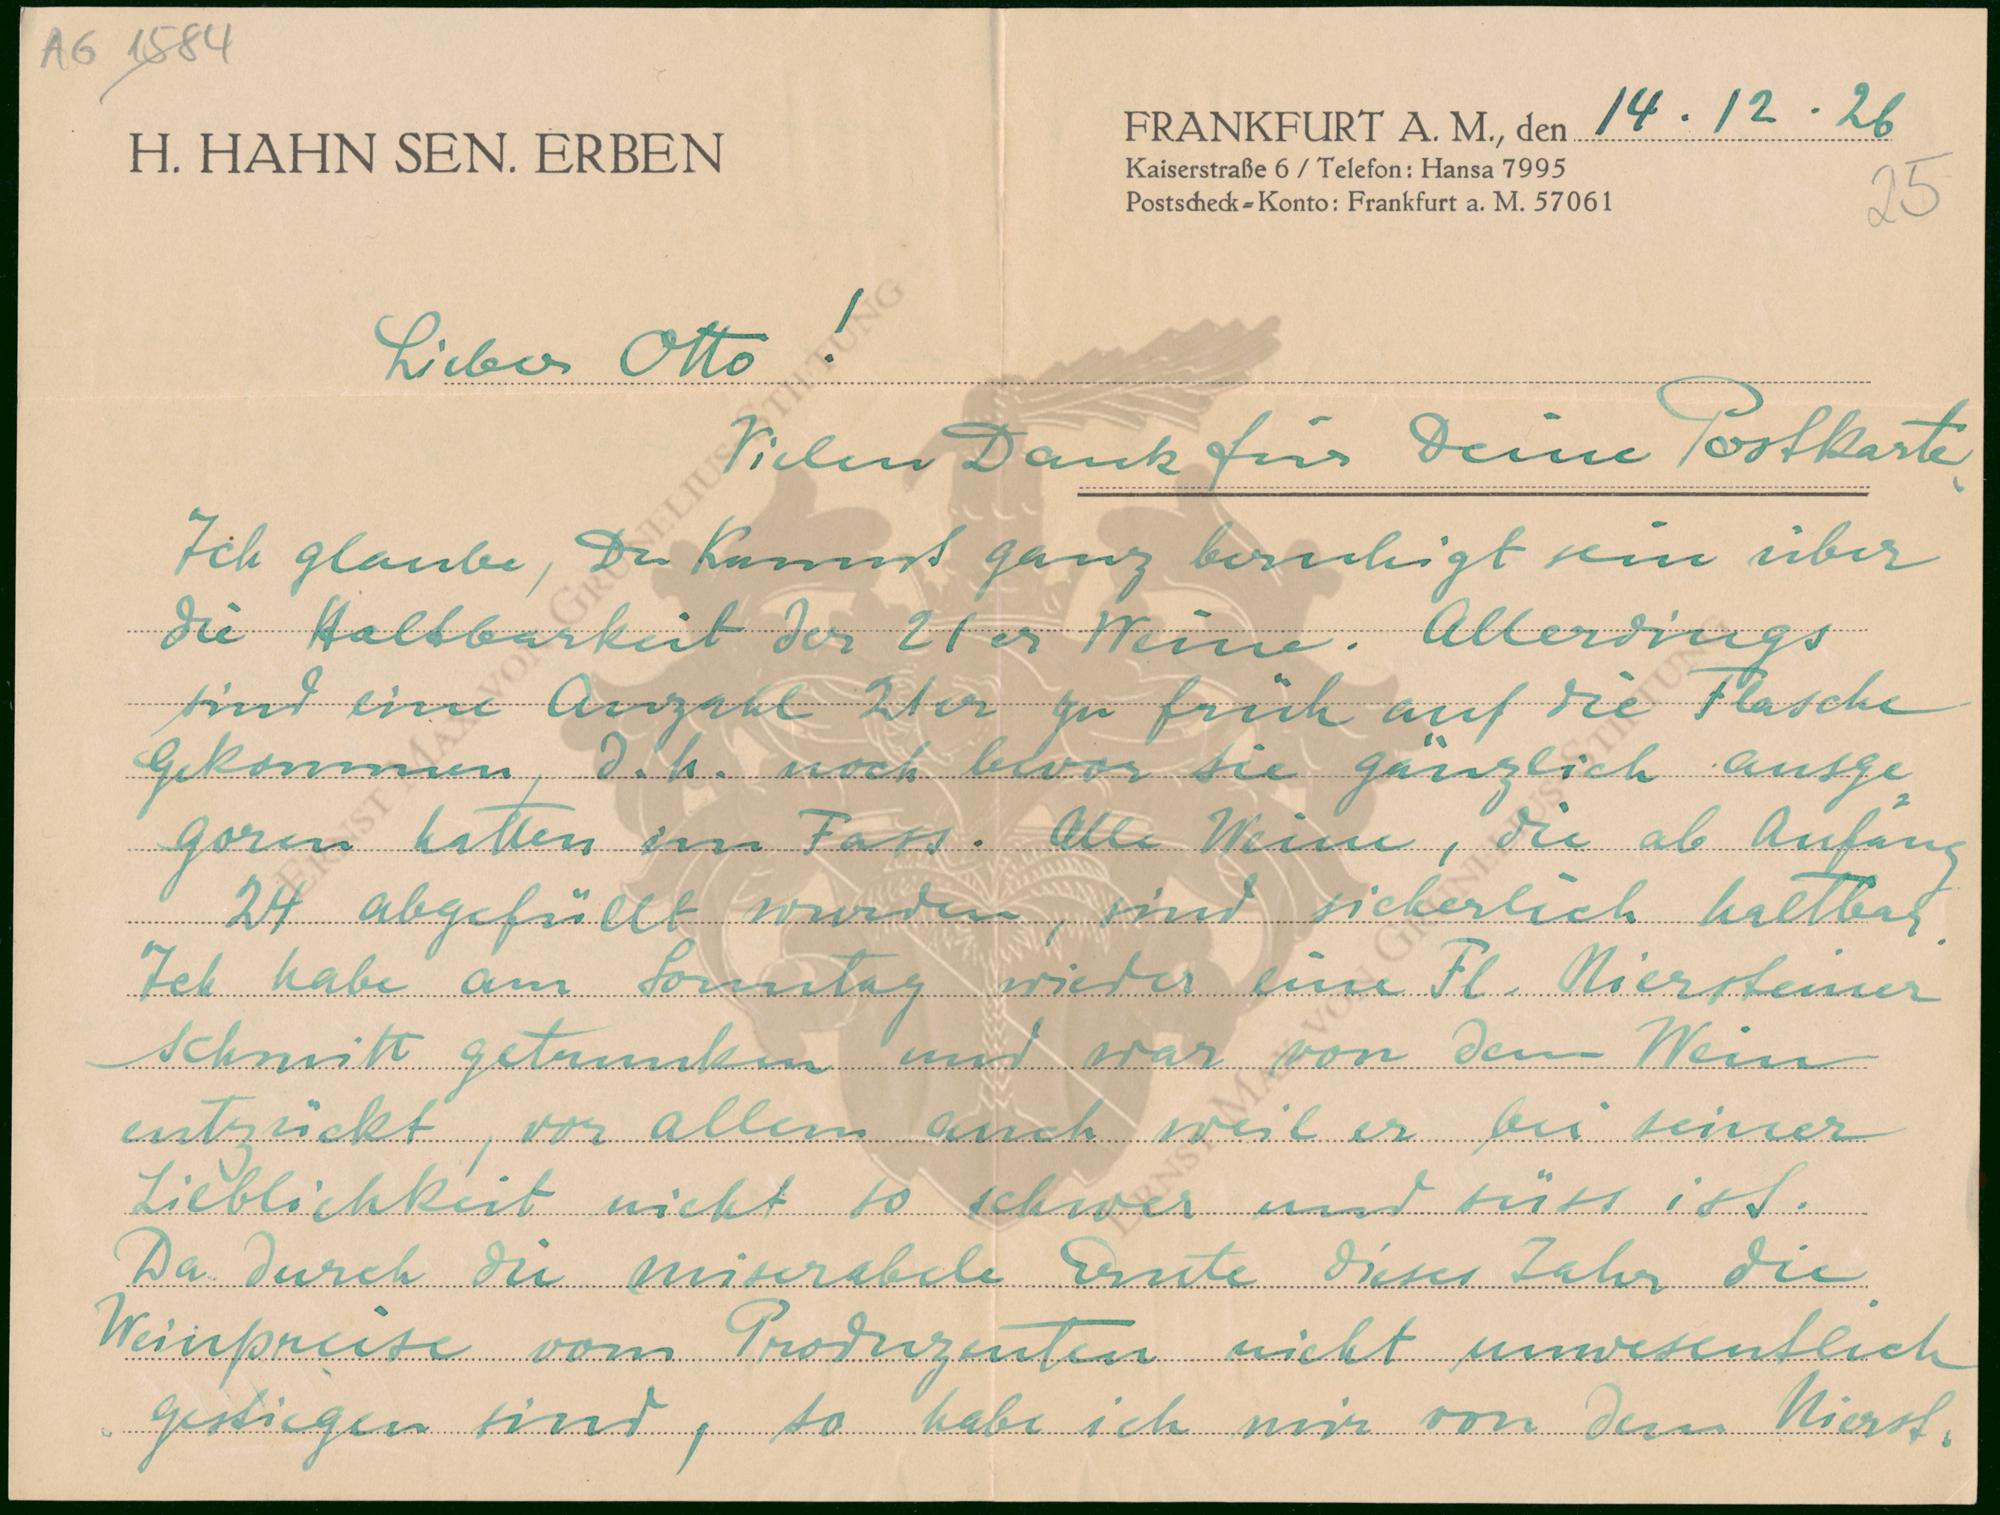 AG 1584
H. HAHN SEN. ERBEN
FRANKFURT A. M., den 14.12.26
Kaiserstraße 6 / Telefon: Hansa 7995
Postscheck-Konto: Frankfurt a. M. 57061
25
Lieber Otto!
Vielen Dank für Deine Postkarte.
Ich glaube, Du kannst ganz beruhigt sein über
die Haltbarkeit der 21er Weine. Allerdings
sind eine Anzahl 21er zu früh auf die Flasche
gekommen, d.h. noch bevor sie gänzlich ausge
goren hatten im Fass. Alle Weine, die ab Anfang
24 abgefüllt wurden, sind sicherlich haltbar.
Ich habe am Sonntag wieder eine Fl. Niersteiner
Schmitt getrunken und war von dem Wein
entzückt, vor allem auch weil er bei seiner
Lieblichkeit nicht so schwer und süss ist.
Da durch die miserabele Ernte dieses Jahr die
Weinpreise vom Produzenten nicht unwesentlich
gestiegen sind, so habe ich mir von dem Nierst.
ERNST MAX VON GRUNELIUS-STIFTUNG
ERNST MAX VON GRUNELIUS-STIFTUNG